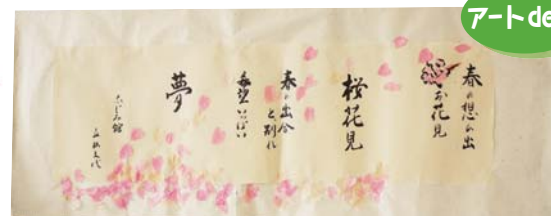 アートde
春の想い出
お花見
桜花見
春の出会
と別れ
希望いっぱい
夢